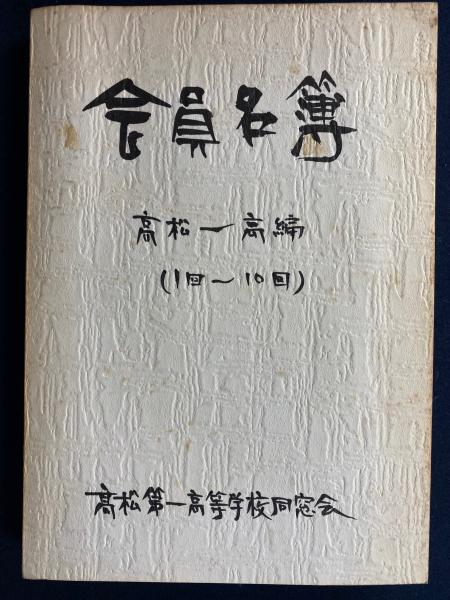 会員名簿
高松一高編
(1回〜10回)
髙松第一高等学校同窓会